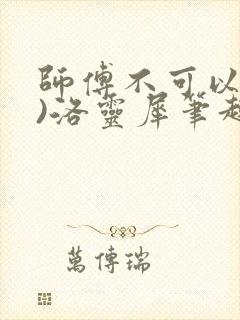 師傅不可以
)洛靈犀筆趣
萬傳瑞